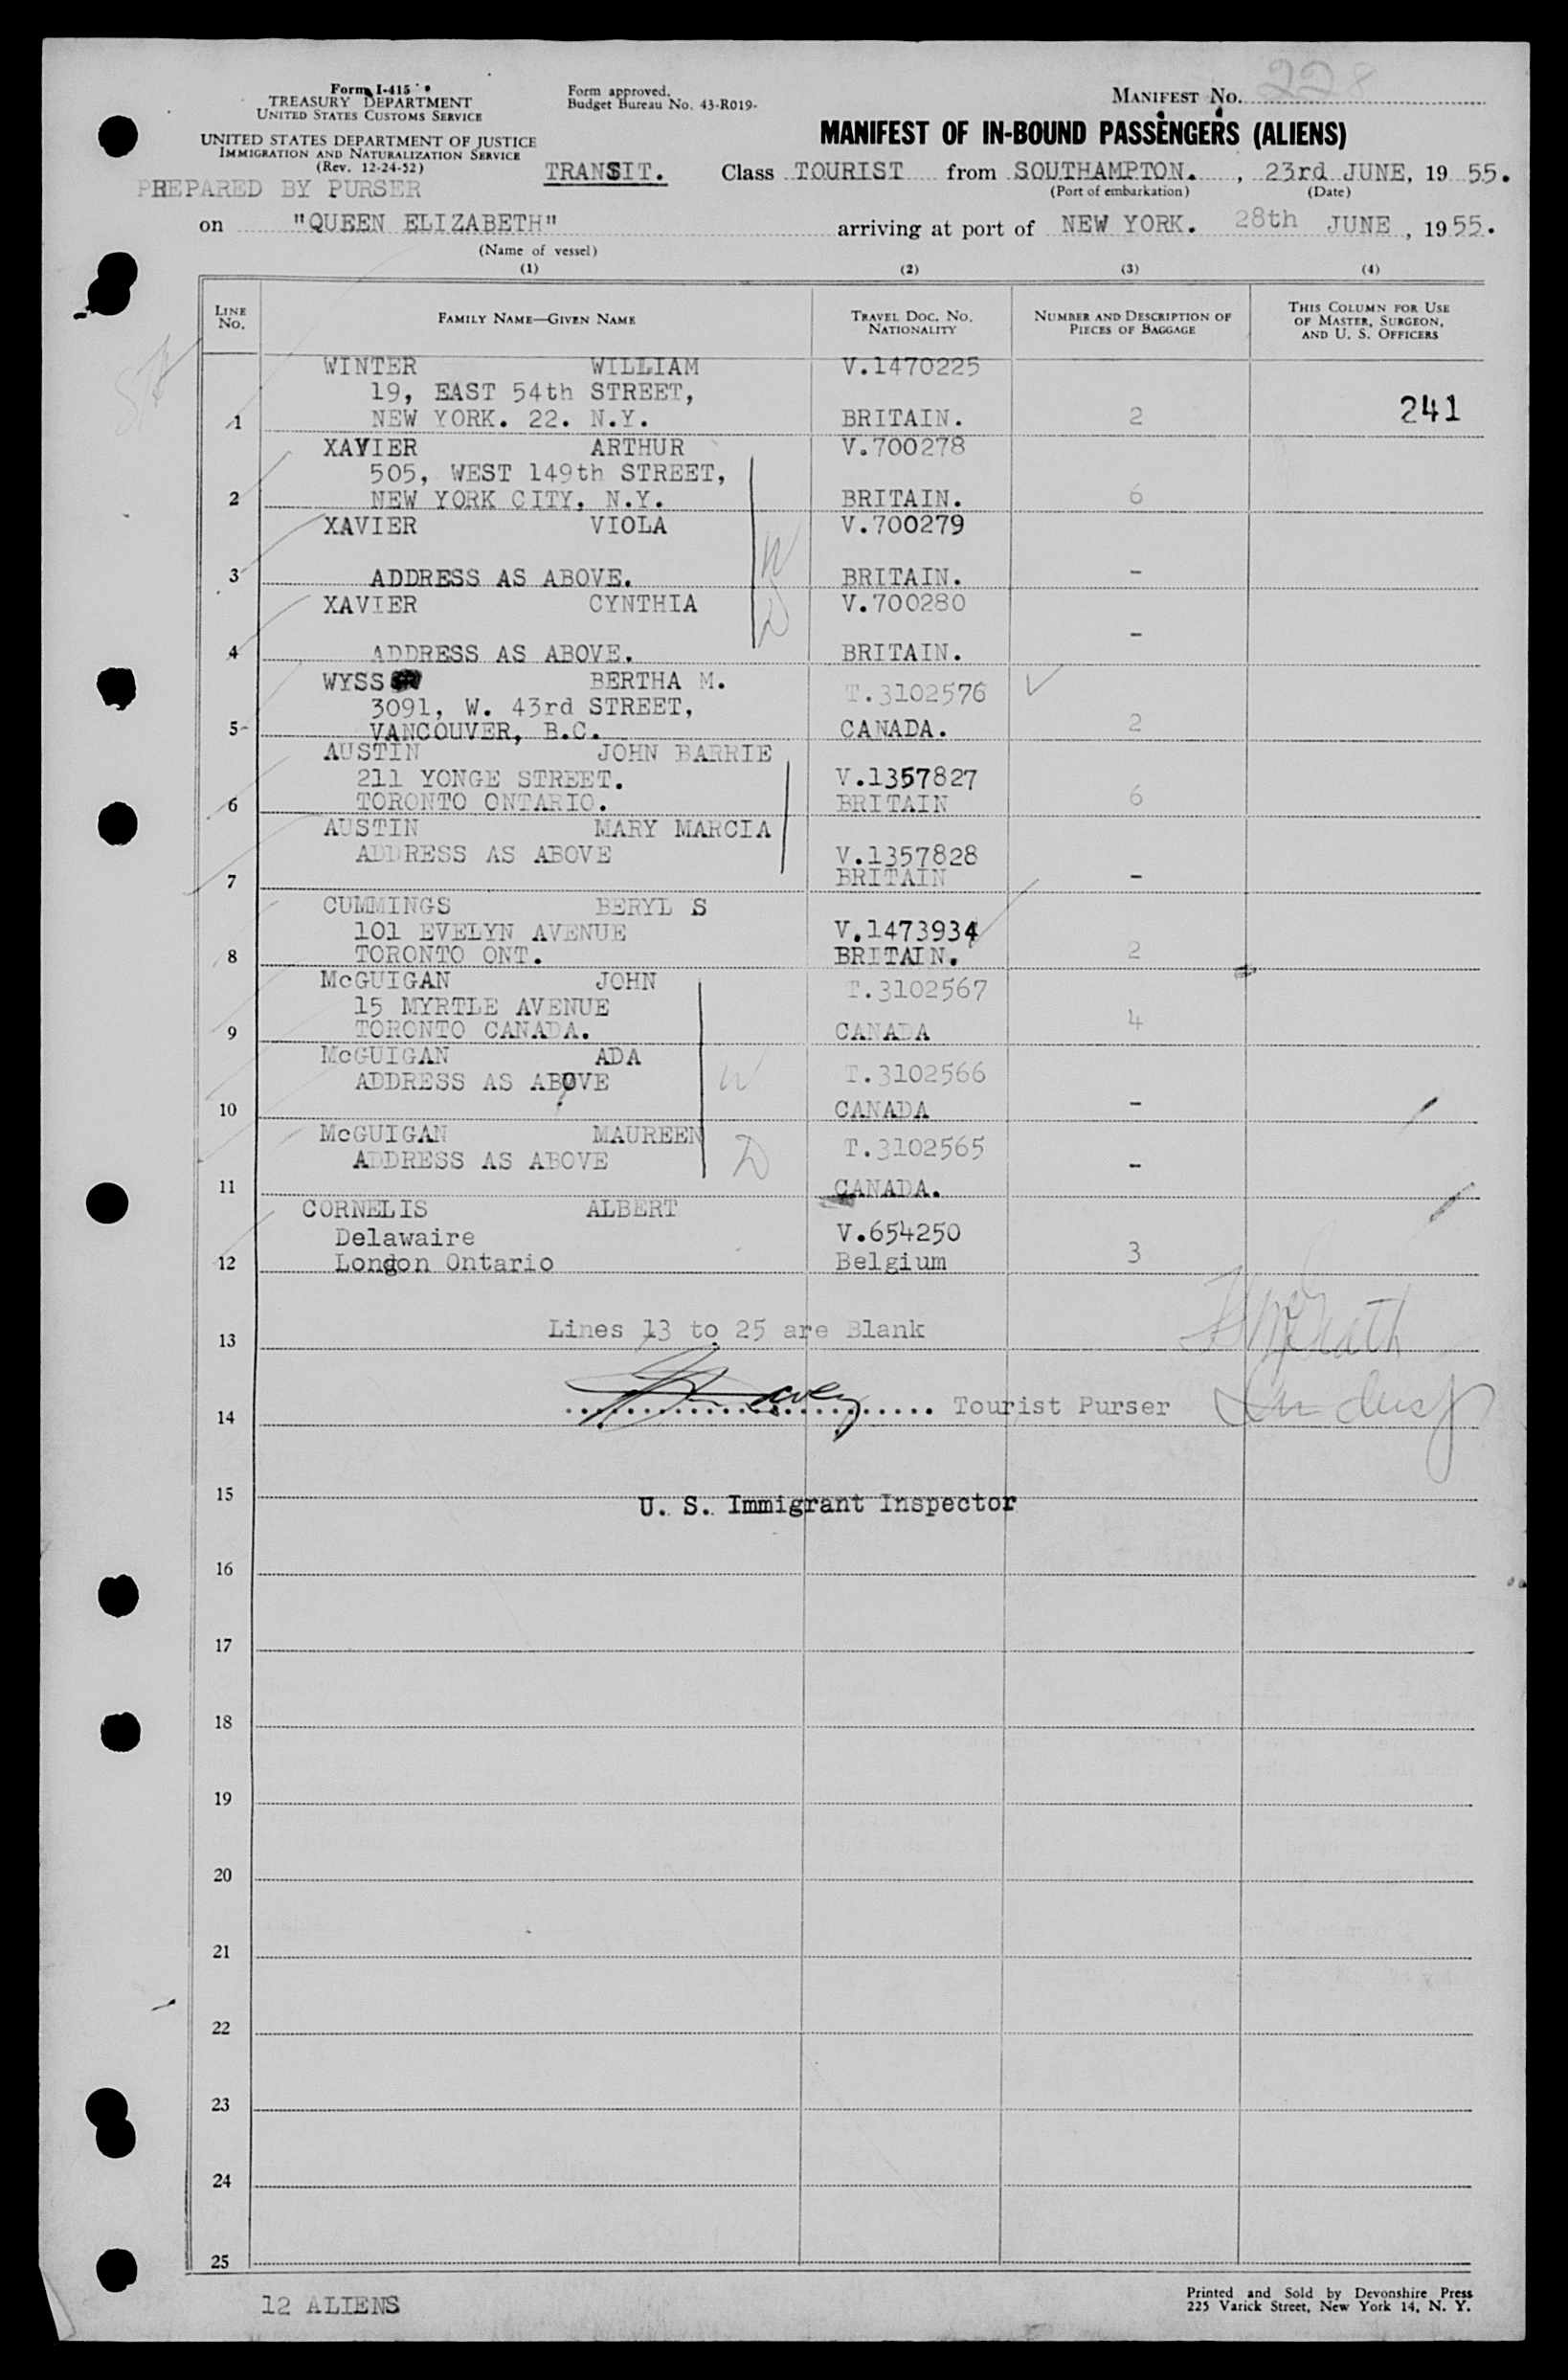 Form I-415
TREASURY DEPARTMENT
UNITED STATES CUSTOMS SERVICE
UNITED STATES DEPARTMENT OF JUSTICE
IMMIGRATION AND NATURALIZATION SERVICE
(Rev. 12-24-52)
PREPARED BY PURSER
Form approved.
Budget Bureau No. 43-R019-
MANIFEST No. 228
MANIFEST OF IN-BOUND PASSENGERS (ALIENS)
TRANSIT. Class TOURIST from SOUTHAMPTON. , 23rd JUNE, 19 55.
(Port of embarkation) (Date)
on "QUEEN ELIZABETH" arriving at port of NEW YORK. 28th JUNE , 19 55.
(Name of vessel)
(1) (2) (3) (4)
LINE No. FAMILY NAME—GIVEN NAME TRAVEL DOC. NO. NATIONALITY NUMBER AND DESCRIPTION OF PIECES OF BAGGAGE THIS COLUMN FOR USE OF MASTER, SURGEON, AND U. S. OFFICERS
WINTER WILLIAM V.1470225
19, EAST 54th STREET,
1 NEW YORK. 22. N.Y. BRITAIN. 2 241
XAVIER ARTHUR V.700278
505, WEST 149th STREET,
2 NEW YORK CITY, N.Y. BRITAIN. 6
XAVIER VIOLA V.700279
W
3 ADDRESS AS ABOVE. BRITAIN. -
XAVIER CYNTHIA V.700280
D
4 ADDRESS AS ABOVE. BRITAIN. -
WYSS BERTHA M. T.3102576
3091, W. 43rd STREET,
5 VANCOUVER, B.C. CANADA. 2
AUSTIN JOHN BARRIE
211 YONGE STREET. V.1357827
6 TORONTO ONTARIO. BRITAIN 6
AUSTIN MARY MARCIA
ADDRESS AS ABOVE V.1357828
7 BRITAIN -
CUMMINGS BERYL S
101 EVELYN AVENUE V.1473934
8 TORONTO ONT. BRITAIN. 2
McGUIGAN JOHN T.3102567
15 MYRTLE AVENUE
9 TORONTO CANADA. CANADA 4
McGUIGAN ADA T.3102566
ADDRESS AS ABOVE W
10 CANADA -
McGUIGAN MAUREEN T.3102565
ADDRESS AS ABOVE D
11 CANADA. -
CORNELIS ALBERT
Delawaire V.654250
12 London Ontario Belgium 3
13 Lines 13 to 25 are Blank
14 Tourist Purser
15 U. S. Immigrant Inspector
16
17
18
19
20
21
22
23
24
25
12 ALIENS
Printed and Sold by Devonshire Press
225 Varick Street, New York 14, N. Y.